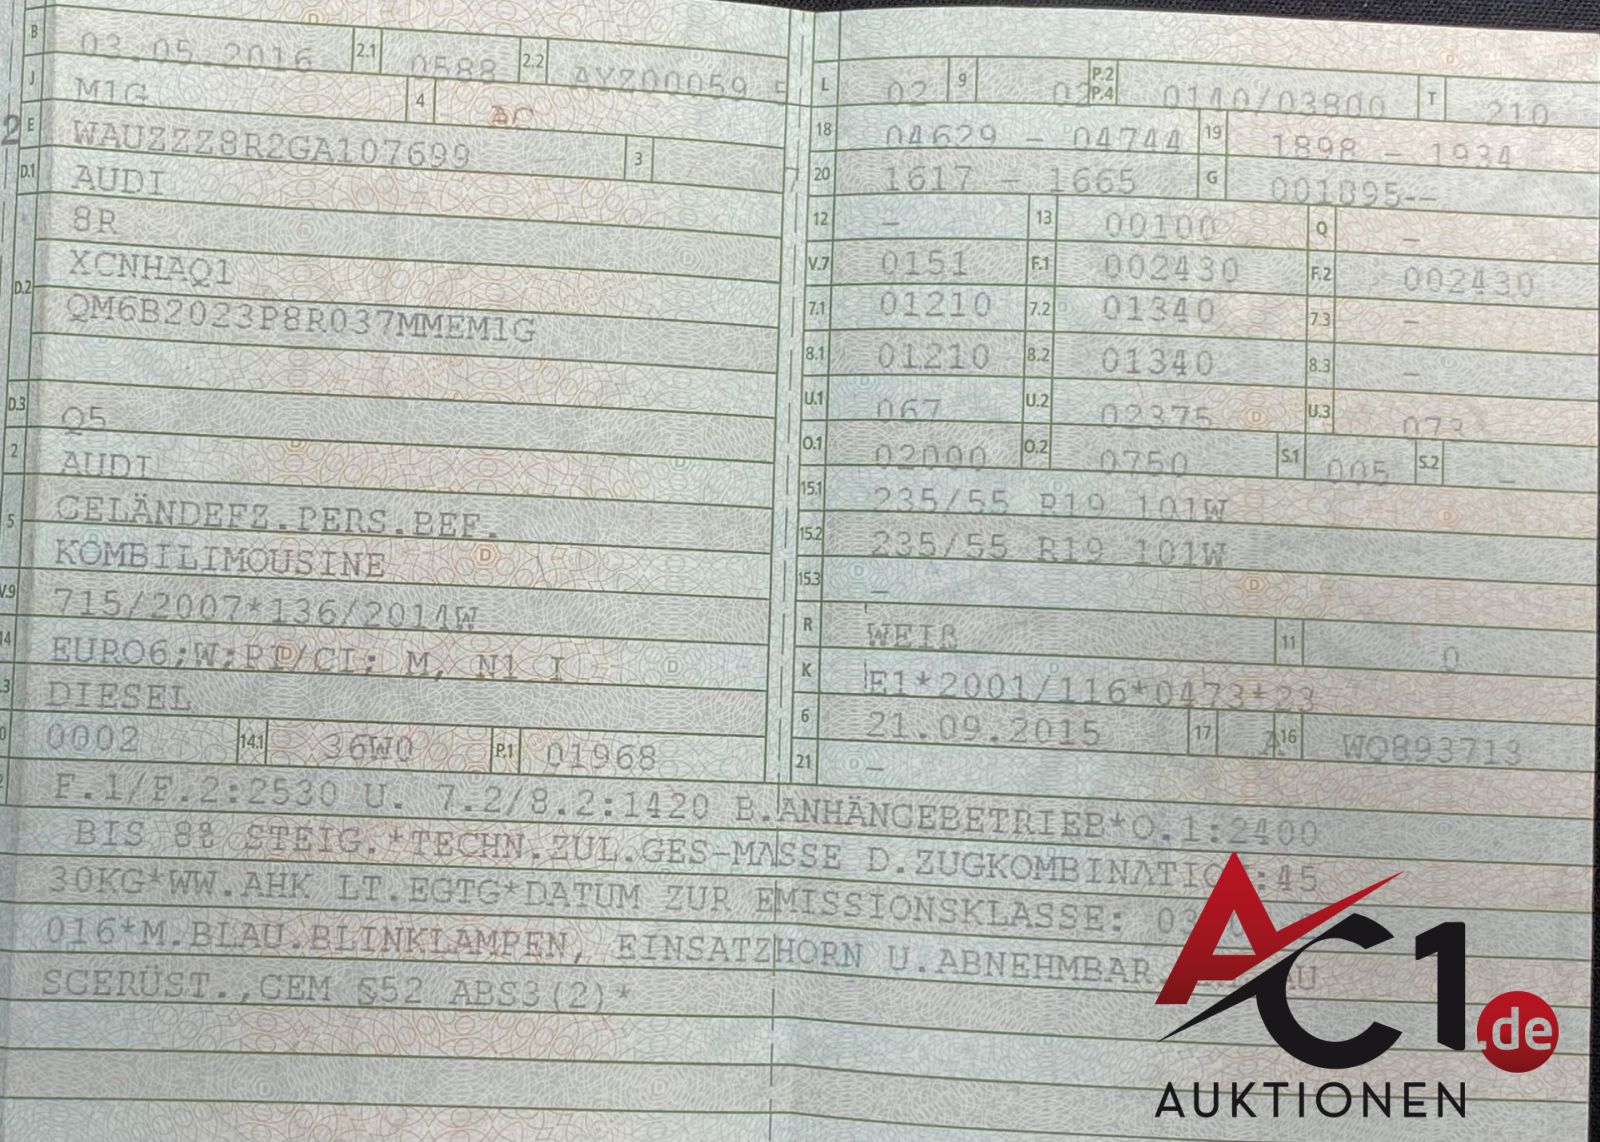 B 03.05.2016 2.1 0588 2.2 AVZ00059 5
J M1G 4 AC
2 E WAUZZZ8R2GA107699 3
D.1 AUDI
8R
D.2 XCNHAQ1
QM6B2023P8R037MMEM1G
D.3 Q5
2 AUDI
5 GELÄNDEFZ.PERS.BEF.
KOMBILIMOUSINE
V.9 715/2007*136/2014W
14 EURO6;W;PI/CI; M, N1 I
.3 DIESEL
0 0002 14.1 36W0 P.1 01968
L 02 9 02 P.2 P.4 0140/03800 T 210
18 04629 – 04744 19 1898 – 1934
7 20 1617 – 1665 G 001895––
12 – 13 00100 Q –
V.7 0151 F.1 002430 F.2 002430
7.1 01210 7.2 01340 7.3 –
8.1 01210 8.2 01340 8.3 –
U.1 067 U.2 02375 U.3 073
O.1 02000 O.2 0750 S.1 005 S.2 –
15.1 235/55 R19 101W
15.2 235/55 R19 101W
15.3 –
R WEIß 11 0
K E1*2001/116*0473*23
6 21.09.2015 17 A 16 WQ893713
21 –
2 F.1/F.2:2530 U. 7.2/8.2:1420 B.ANHÄNGEBETRIEB*O.1:2400
BIS 8% STEIG.*TECHN.ZUL.GES-MASSE D.ZUGKOMBINATION:45
30KG*WW.AHK LT.EGTG*DATUM ZUR EMISSIONSKLASSE:
016*M.BLAU.BLINKLAMPEN, EINSATZHORN U.ABNEHMBAR.
SGERÜST.,GEM §52 ABS3(2)*
AC1.de
AUKTIONEN